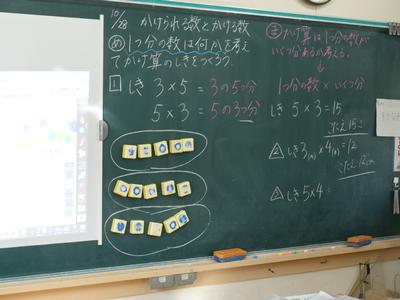 10/28 かけられる数とかける数
め 1つ分の数は何かを考え
てかけ算のしきをつくろう。
1 しき 3×5=3の5つ分
5×3=5の3つ分
ま かけ算は1つ分の数が
いくつ分あるか考える。
↓
1つ分の数×いくつ分
しき 5×3=15
こたえ15こ
2 しき3(cm)×4(cm)=12
こたえ12cm
3 しき5×4=